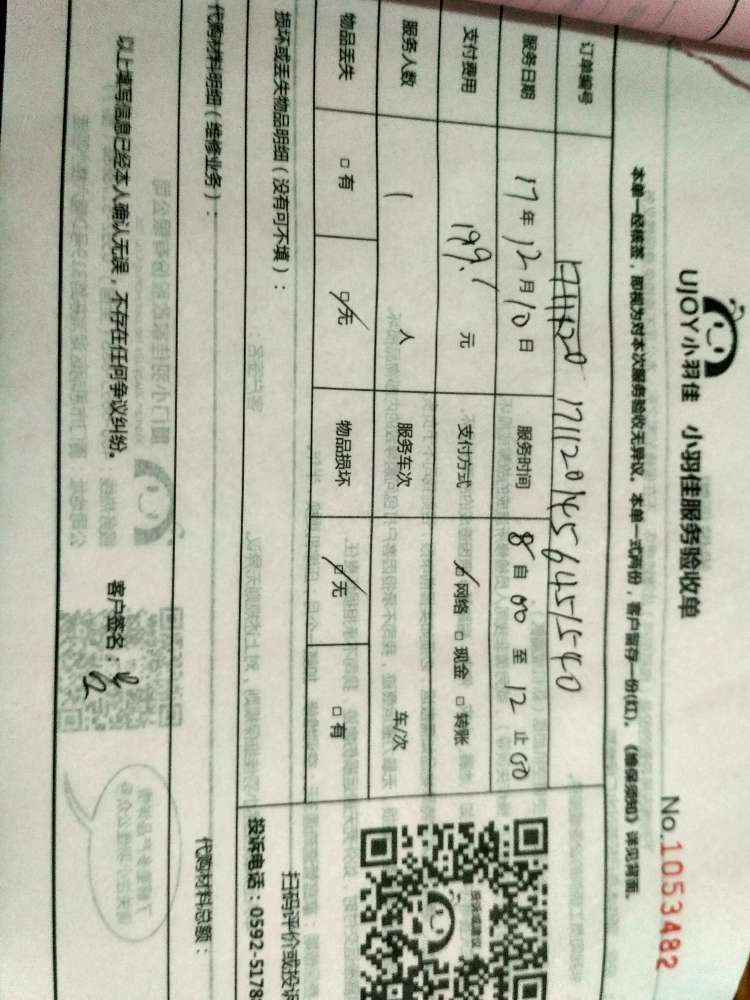 UJOY小羽佳 小羽佳服务验收单
No.1053482
本单一经接签，即视为对本次服务验收无异议。本单一式两份，客户留存一份(红)。《维保须知》详见背面。
订单编号 1711201456451540
服务日期 17年12月10日 服务时间 8自00至12止00
支付费用 199.1元 支付方式 ☑网络 □现金 □转账
服务人数 1人 服务车次 车/次
物品丢失 □有 ☑无 物品损坏 ☑无 □有
损坏或丢失物品明细（没有可不填）：
扫码评价或投诉
投诉电话：0592-5178
代购材料明细（维修业务）：
代购材料总额：
以上填写信息已经本人确认无误，不存在任何争议纠纷。 客户签名：